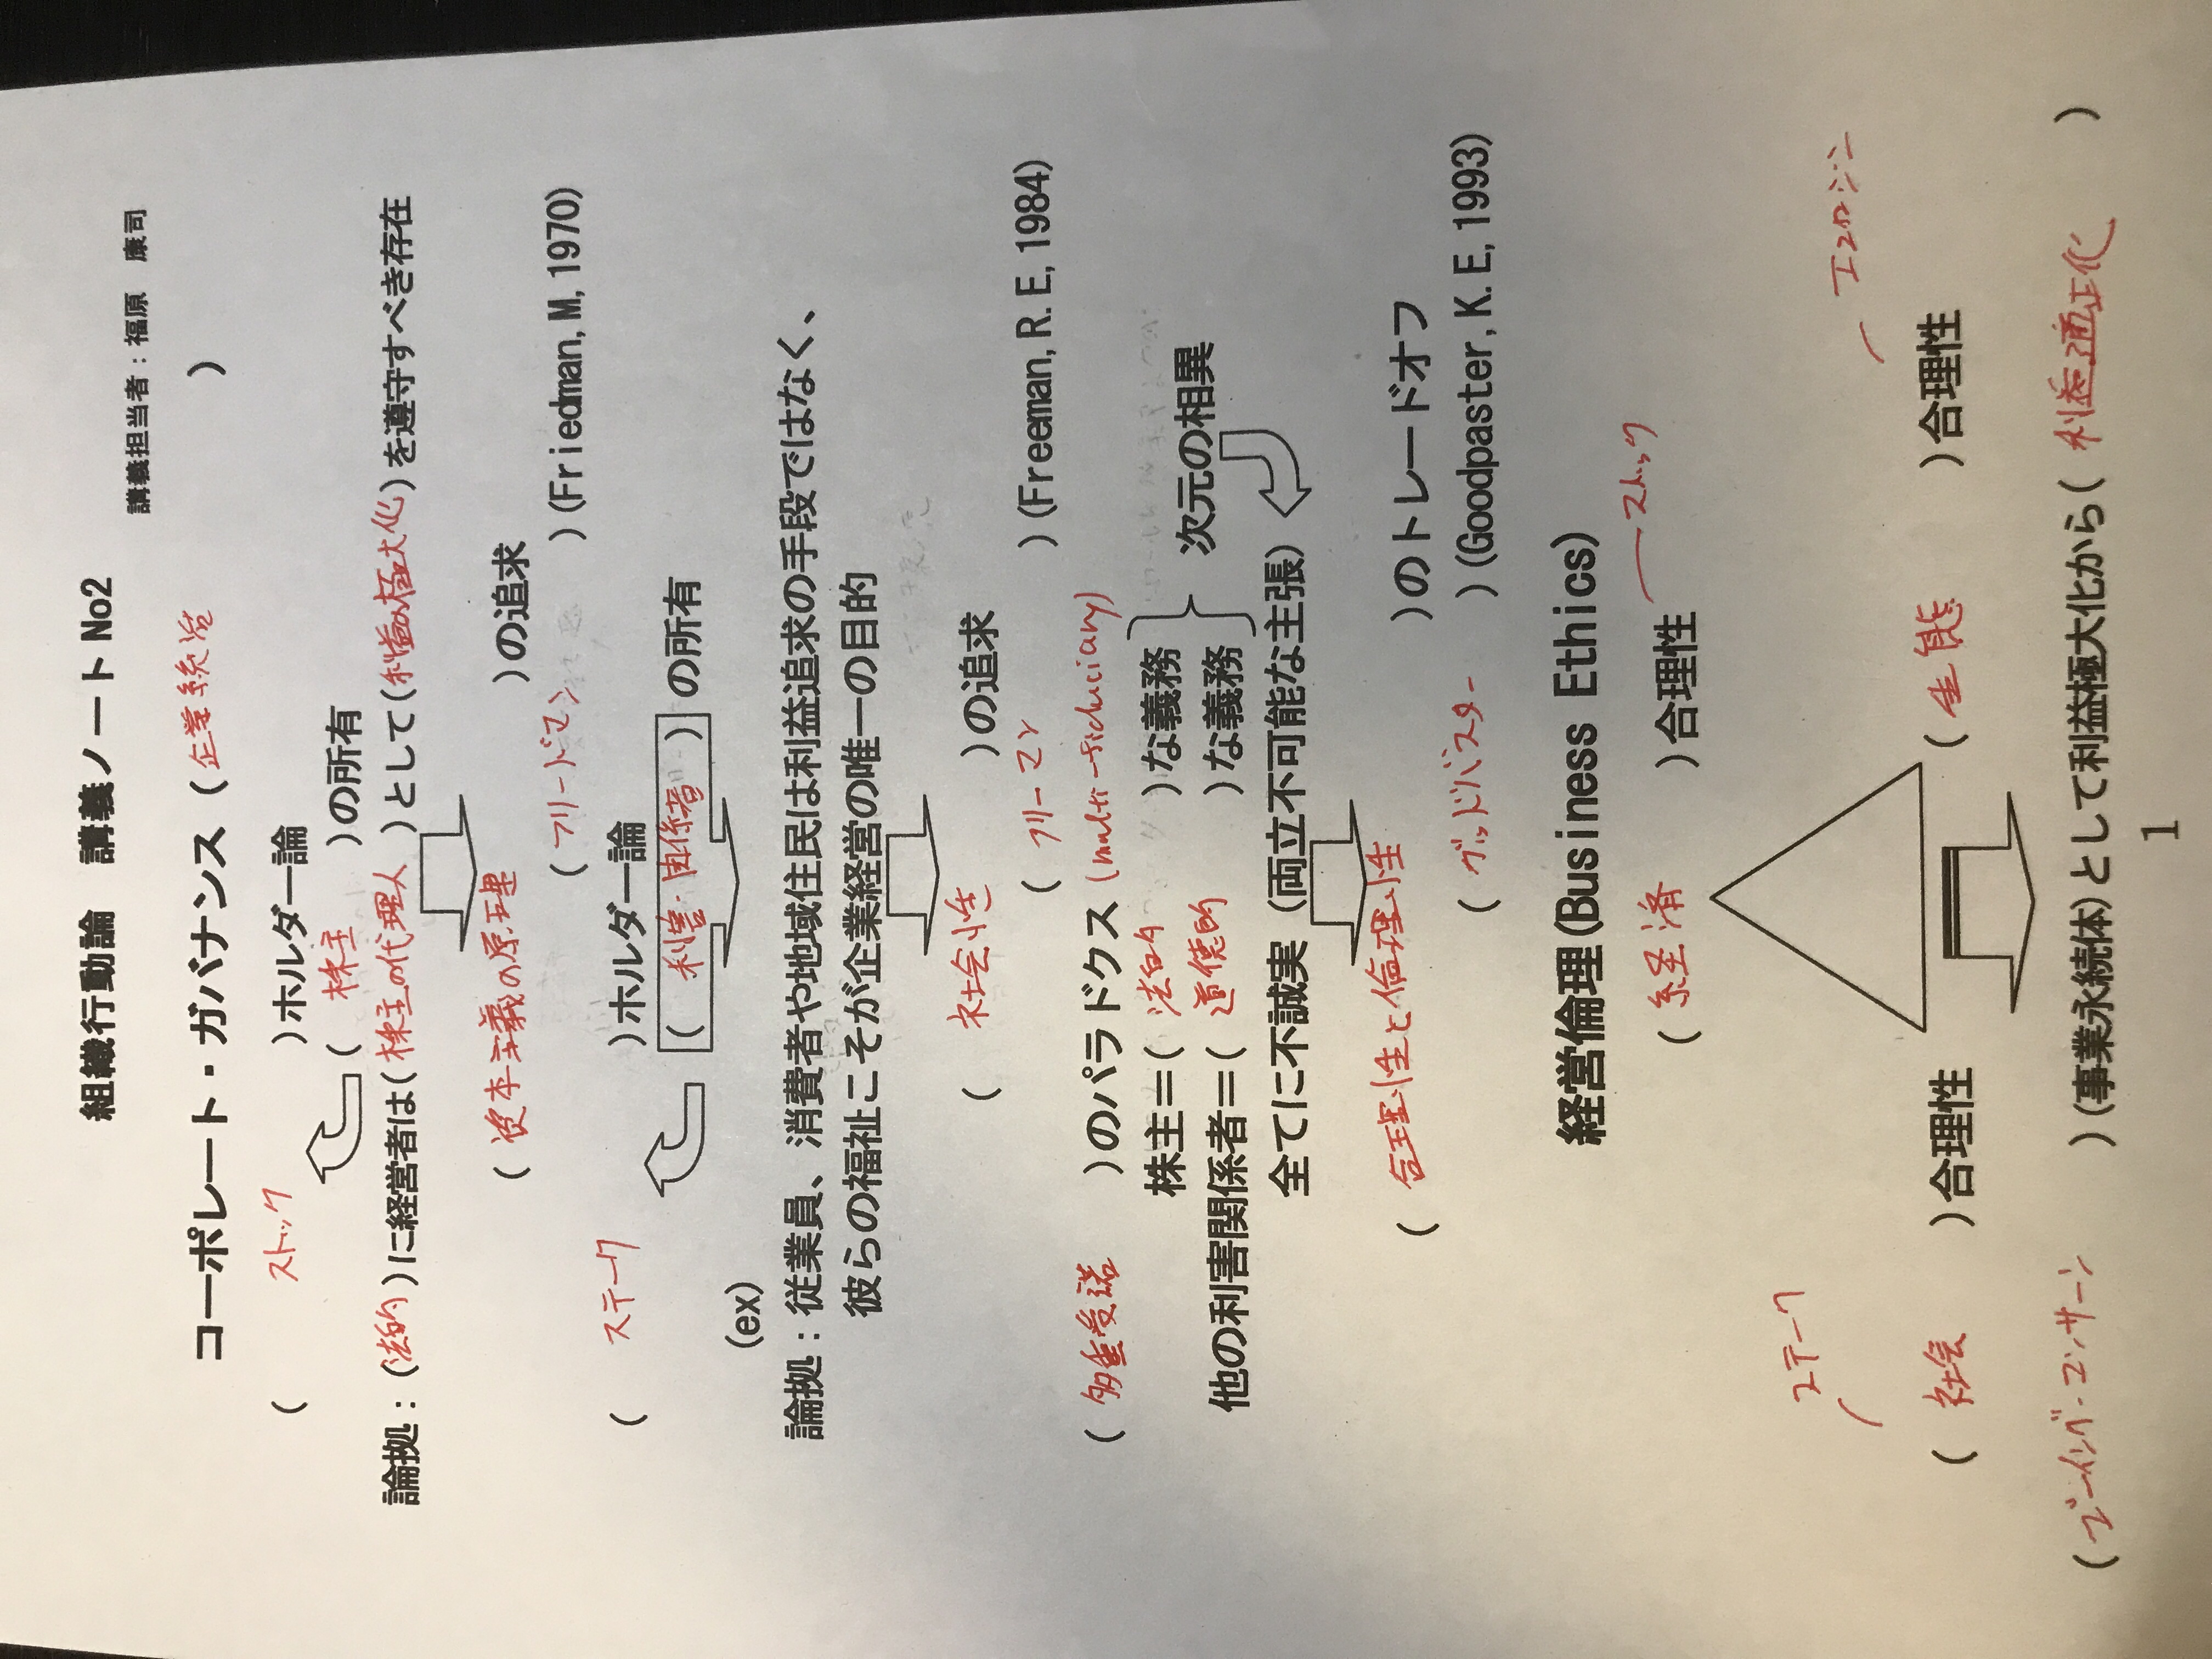 組織行動論　講義ノート No2
講義担当者：福原　康司
コーポレート・ガバナンス（企業統治）
（ストック）ホルダー論
（株主）の所有
論拠：（法的）に経営者は（株主の代理人）として（利益の極大化）を遵守すべき存在
（資本主義の原理）の追求
（フリードマン）(Friedman, M, 1970)
（ステーク）ホルダー論
（利害・関係者）の所有
(ex)
論拠：従業員、消費者や地域住民は利益追求の手段ではなく、
彼らの福祉こそが企業経営の唯一の目的
（社会性）の追求
（フリーマン）(Freeman, R. E, 1984)
（多重受諾）のパラドクス (multi-fiduciary)
株主＝（法的）な義務
他の利害関係者＝（道徳的）な義務
次元の相異
全てに不誠実（両立不可能な主張）
（合理性と倫理性）のトレードオフ
（グッドパスター）(Goodpaster, K. E, 1993)
経営倫理(Business Ethics)
（経済）合理性 ストック
ステーク
エコロジー
（社会）合理性
（生態）合理性
（ゴーイング・コンサーン）(事業永続体)として利益極大化から（利益適正化）
1